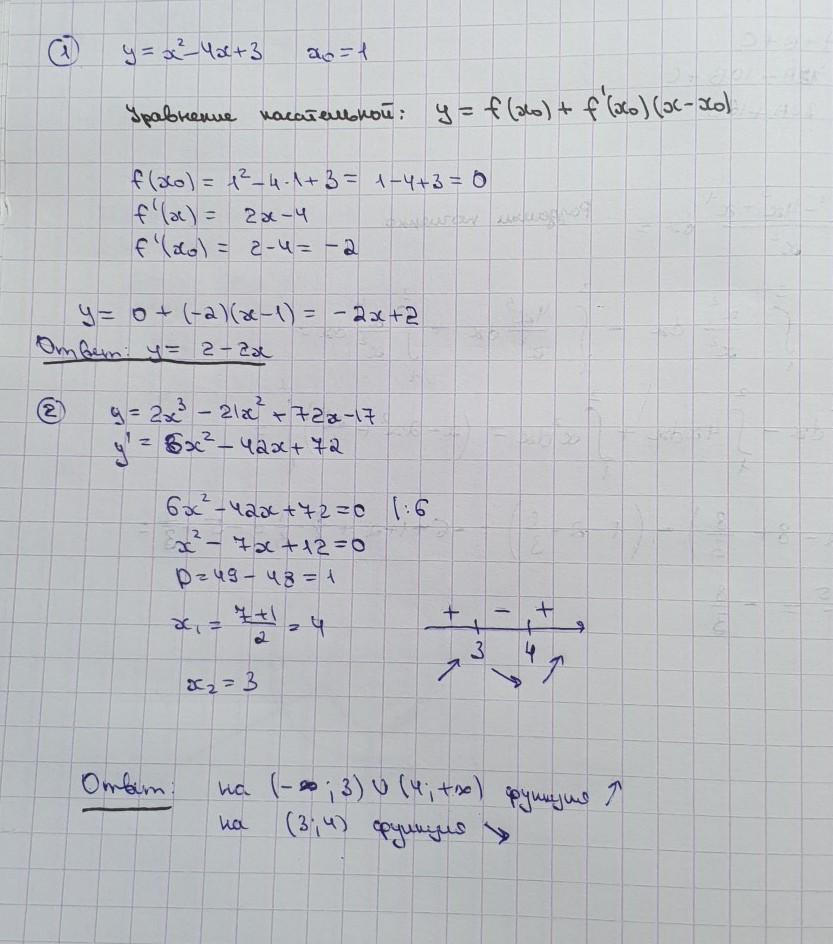 ① y = x² – 4x + 3 x₀ = 1
Уравнение касательной: y = f(x₀) + f'(x₀)(x – x₀)
f(x₀) = 1² – 4·1 + 3 = 1 – 4 + 3 = 0
f'(x) = 2x – 4
f'(x₀) = 2 – 4 = –2
y = 0 + (–2)(x – 1) = –2x + 2
Ответ: y = 2 – 2x
② y = 2x³ – 21x² + 72x – 17
y' = 6x² – 42x + 72
6x² – 42x + 72 = 0 |:6
x² – 7x + 12 = 0
D = 49 – 48 = 1
x₁ = (7+1)/2 = 4
+ – +
3 4
↗ ↘ ↗
x₂ = 3
Ответ: на (–∞; 3) ∪ (4; +∞) функция ↗
на (3; 4) функция ↘